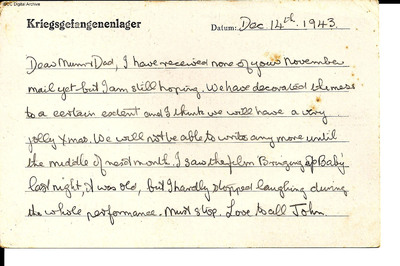 IBCC Digital Archive
Kriegsgefangenenlager Datum: Dec 14th. 1943.
Dear Mum & Dad, I have received none of your November
mail yet but I am still hoping. We have decorated the mess
to a certain extent and I think we will have a very
jolly Xmas. We will not be able to write any more until
the middle of next month. I saw the film Bringing up Baby
last night, it was old, but I hardly stopped laughing during
the whole performance. Must stop. Love to all John.